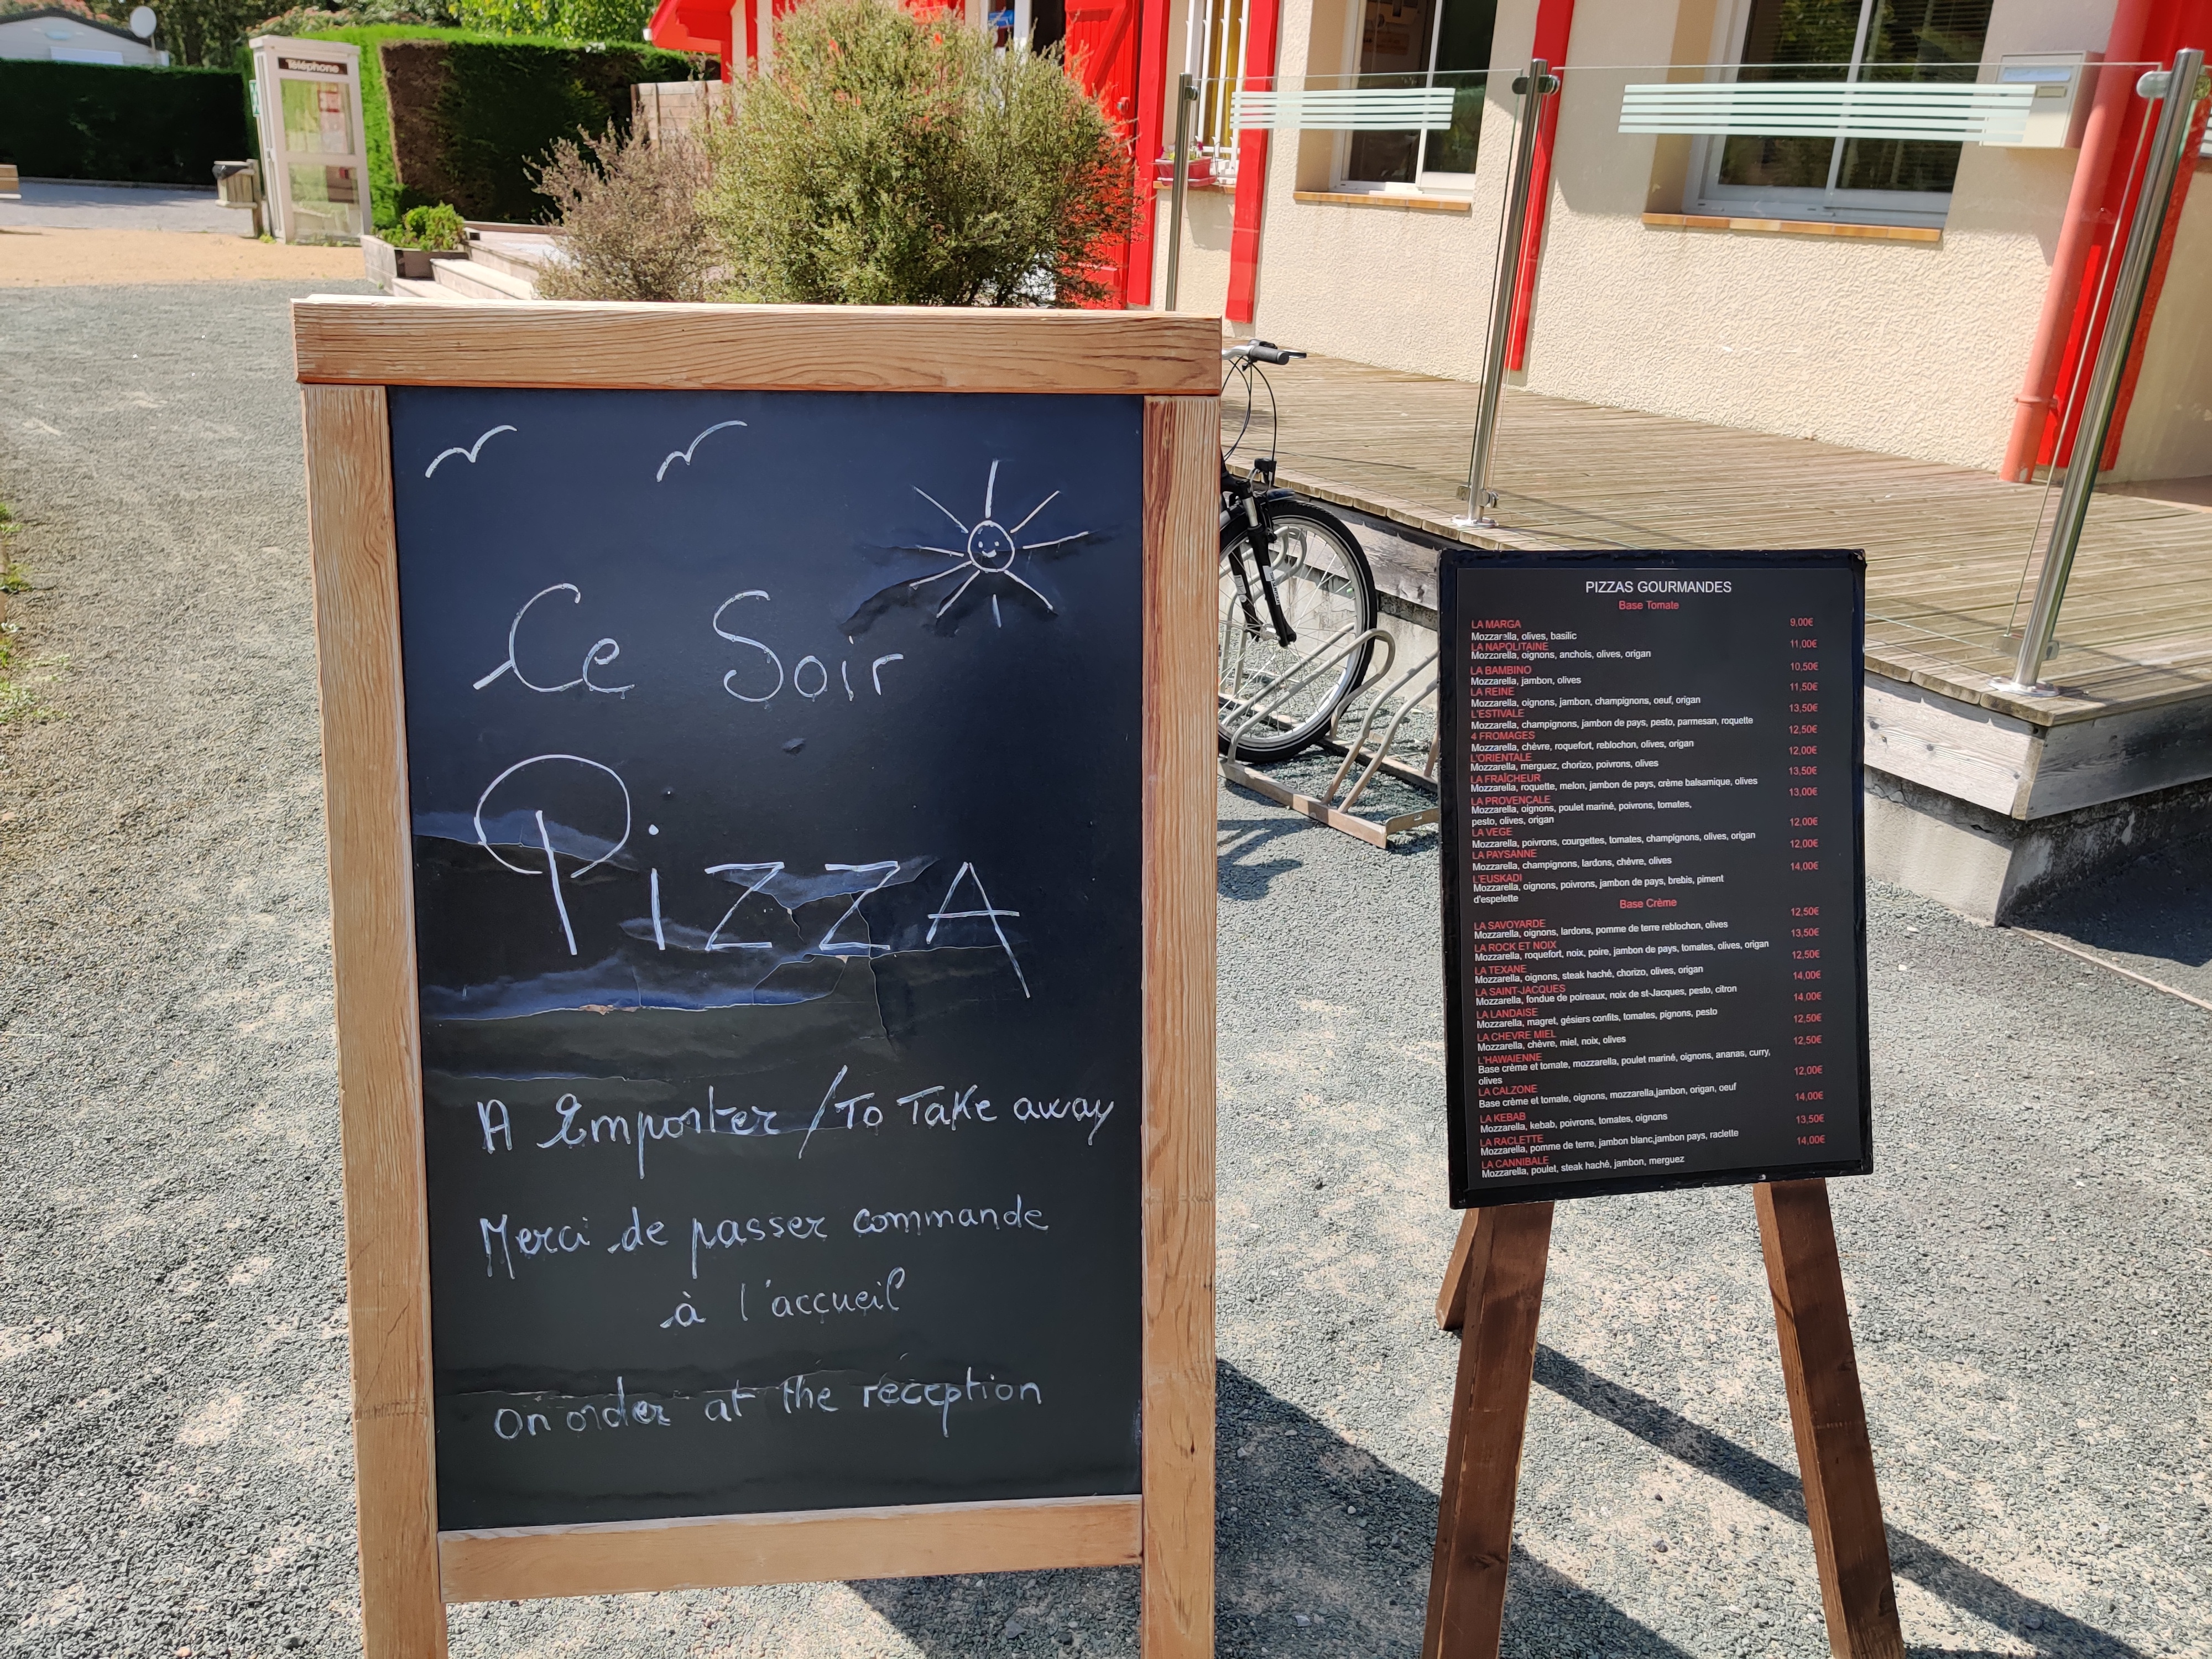 Téléphone
Ce Soir
PiZZA
A Emporter / To Take away
Merci de passer commande
à l'accueil
on order at the réception
PIZZAS GOURMANDES
Base Tomate
LA MARGA 9,00€
Mozzarella, olives, basilic
LA NAPOLITAINE 11,00€
Mozzarella, oignons, anchois, olives, origan
LA BAMBINO 10,50€
Mozzarella, jambon, olives
LA REINE 11,50€
Mozzarella, oignons, jambon, champignons, oeuf, origan
L'ESTIVALE 13,50€
Mozzarella, champignons, jambon de pays, pesto, parmesan, roquette
4 FROMAGES 12,50€
Mozzarella, chèvre, roquefort, reblochon, olives, origan
L'ORIENTALE 12,00€
Mozzarella, merguez, chorizo, poivrons, olives
LA FRAÎCHEUR 13,50€
Mozzarella, roquette, melon, jambon de pays, crème balsamique, olives
LA PROVENCALE 13,00€
Mozzarella, oignons, poulet mariné, poivrons, tomates,
pesto, olives, origan
LA VEGE 12,00€
Mozzarella, poivrons, courgettes, tomates, champignons, olives, origan
LA PAYSANNE 12,00€
Mozzarella, champignons, lardons, chèvre, olives
L'EUSKADI 14,00€
Mozzarella, oignons, poivrons, jambon de pays, brebis, piment
d'espelette
Base Crème
LA SAVOYARDE 12,50€
Mozzarella, oignons, lardons, pomme de terre reblochon, olives
LA ROCK ET NOIX 13,50€
Mozzarella, roquefort, noix, poire, jambon de pays, tomates, olives, origan
LA TEXANE 12,50€
Mozzarella, oignons, steak haché, chorizo, olives, origan
LA SAINT-JACQUES 14,00€
Mozzarella, fondue de poireaux, noix de st-Jacques, pesto, citron
LA LANDAISE 14,00€
Mozzarella, magret, gésiers confits, tomates, pignons, pesto
LA CHEVRE MIEL 12,50€
Mozzarella, chèvre, miel, noix, olives
L'HAWAIENNE 12,50€
Base crème et tomate, mozzarella, poulet mariné, oignons, ananas, curry,
olives
LA CALZONE 12,00€
Base crème et tomate, oignons, mozzarella,jambon, origan, oeuf
LA KEBAB 14,00€
Mozzarella, kebab, poivrons, tomates, oignons
LA RACLETTE 13,50€
Mozzarella, pomme de terre, jambon blanc,jambon pays, raclette
LA CANNIBALE 14,00€
Mozzarella, poulet, steak haché, jambon, merguez